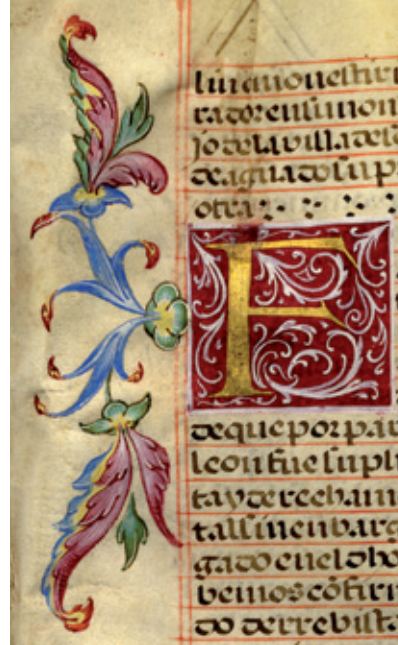 rador en su non
jo de la villa de l
de aguado su p
otra
F
de que por par
leon fue supli
ta y derecham
tal sin enbarg
gado en el dho
bemos cõfirm
do de rrebista